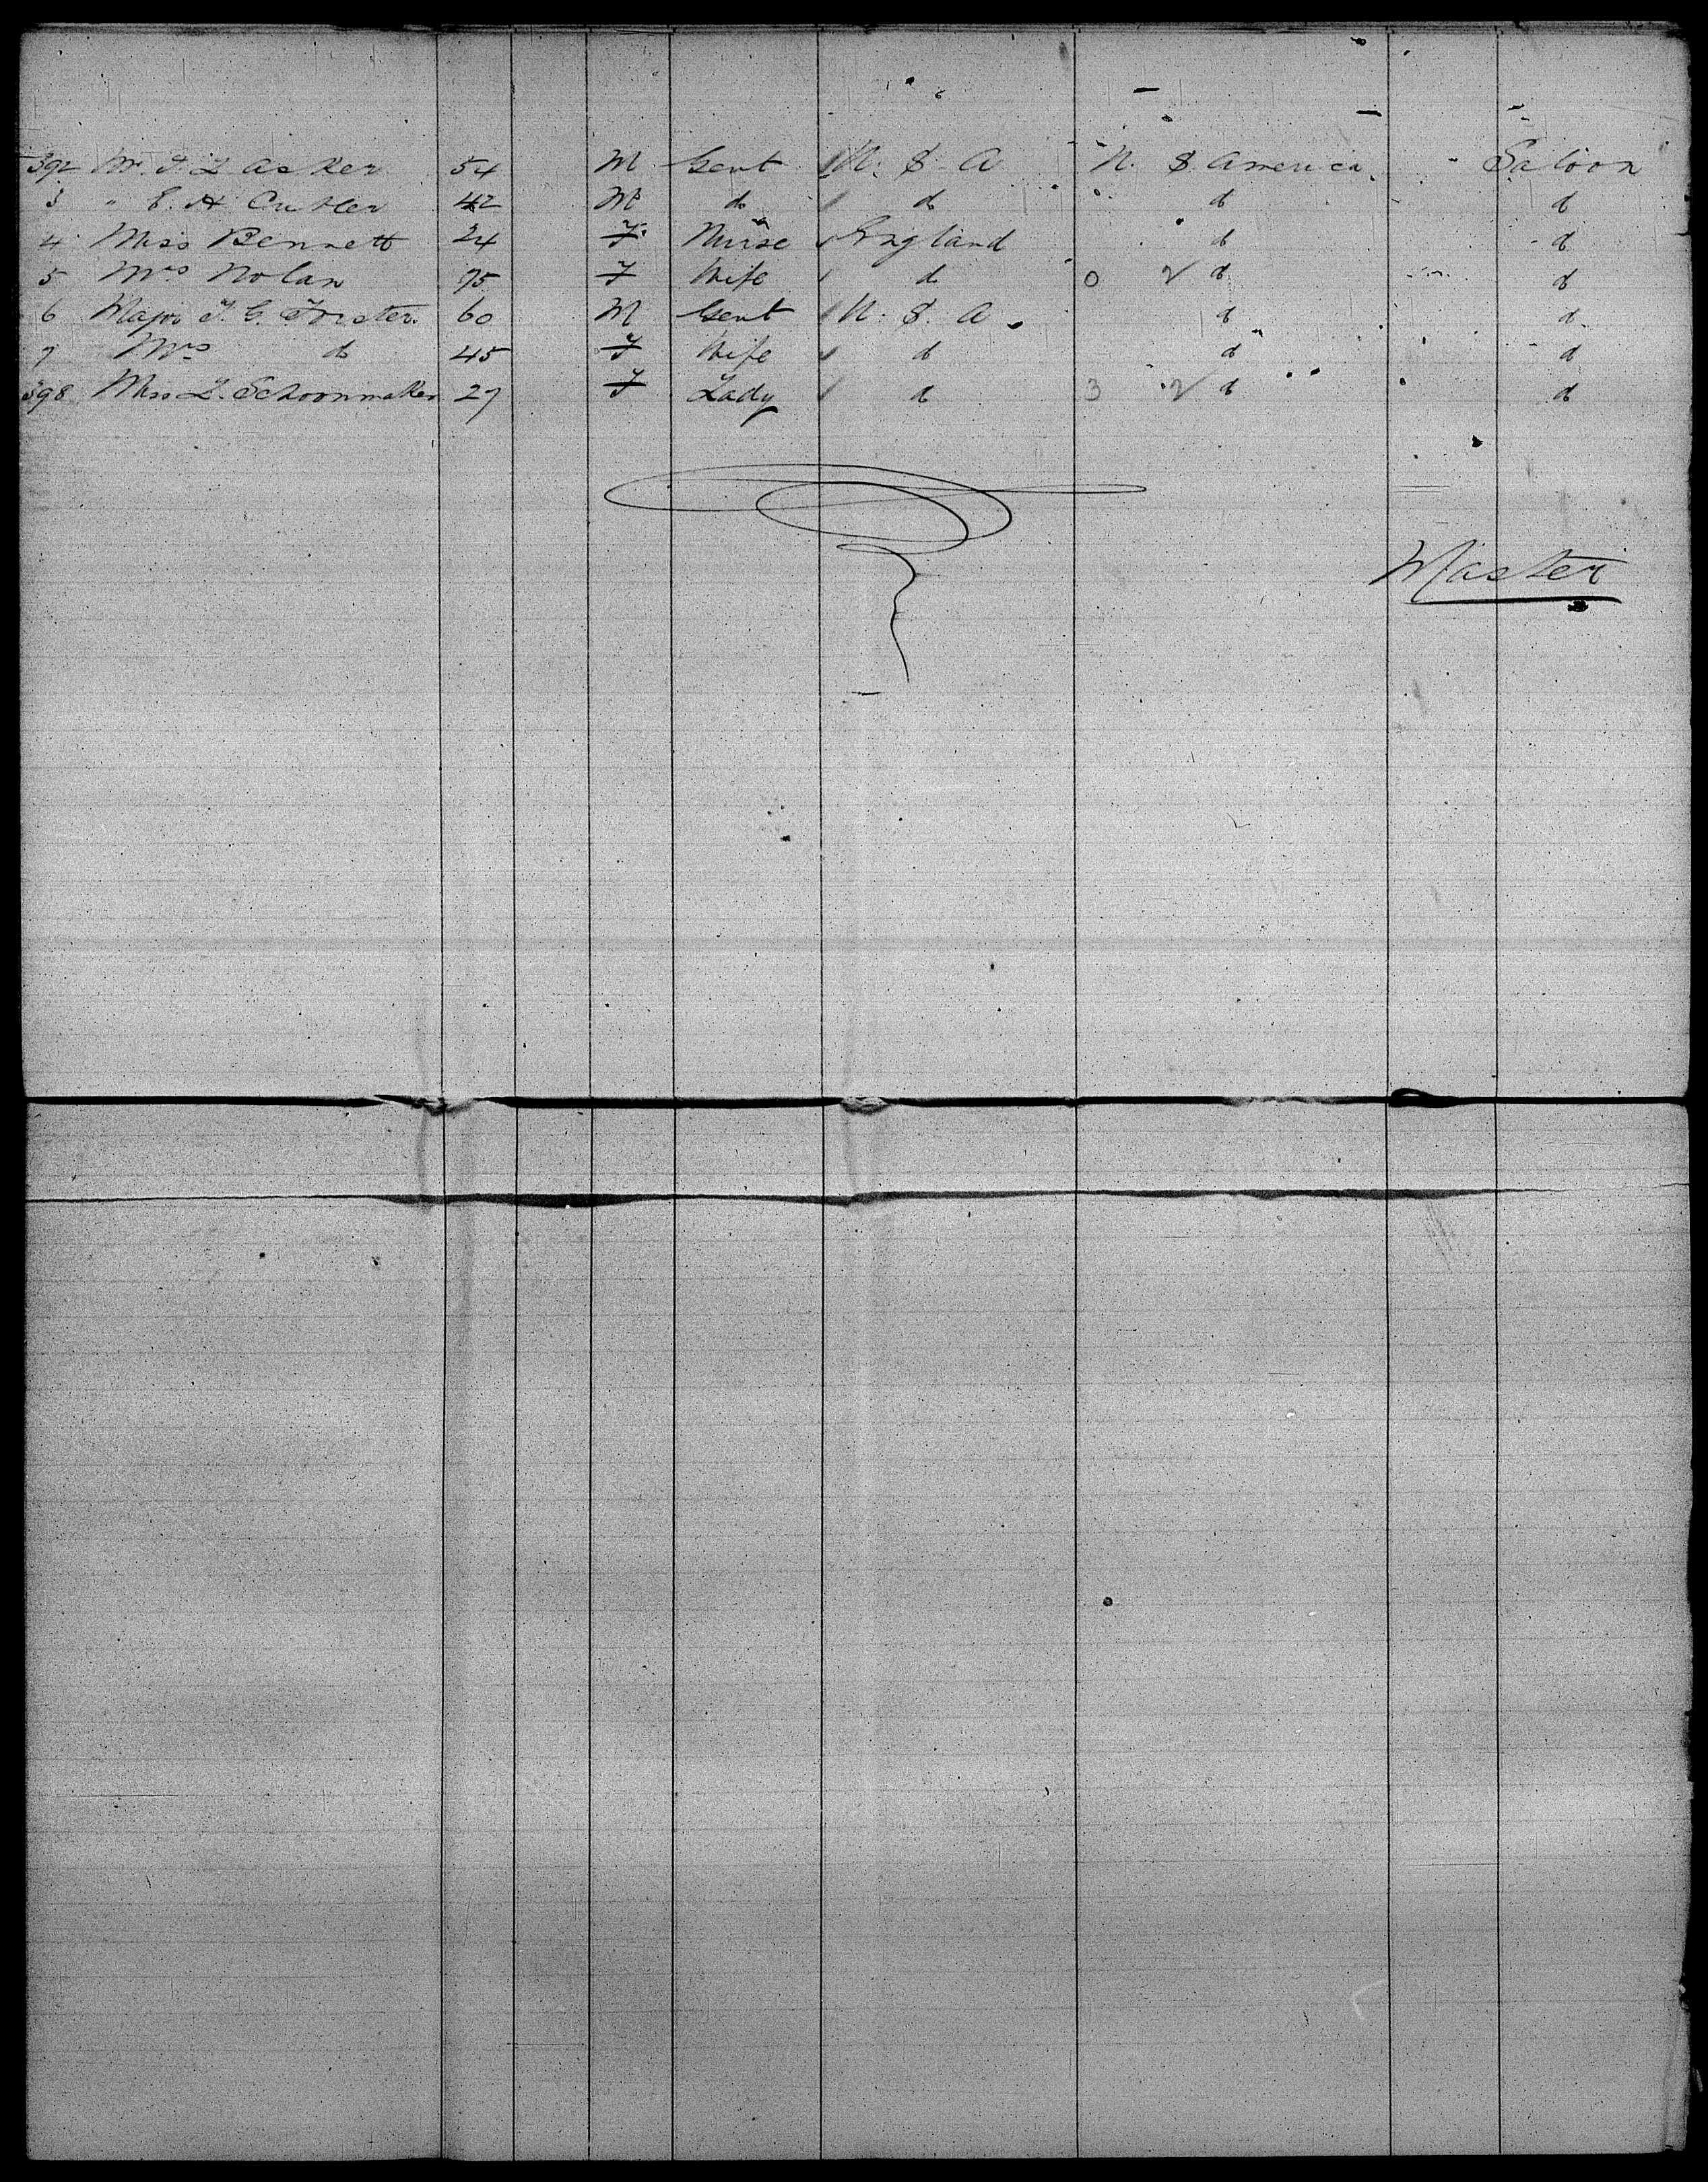 392 Mr. F. L Acker 54 M Gent U. S. A U. S. America. Saloon
3 " E. H Cutler 42 M do do do do
4 Miss Bennett 24 F Nurse England do do
5 Mrs Nolan 75 F Wife do 0 do do
6 Major T. G. Forster. 60 M Gent U. S. A. do do
7 Mrs do 45 F Wife do do do
398 Miss L. Schoonmaker 27 F Lady do 3 do do
Master